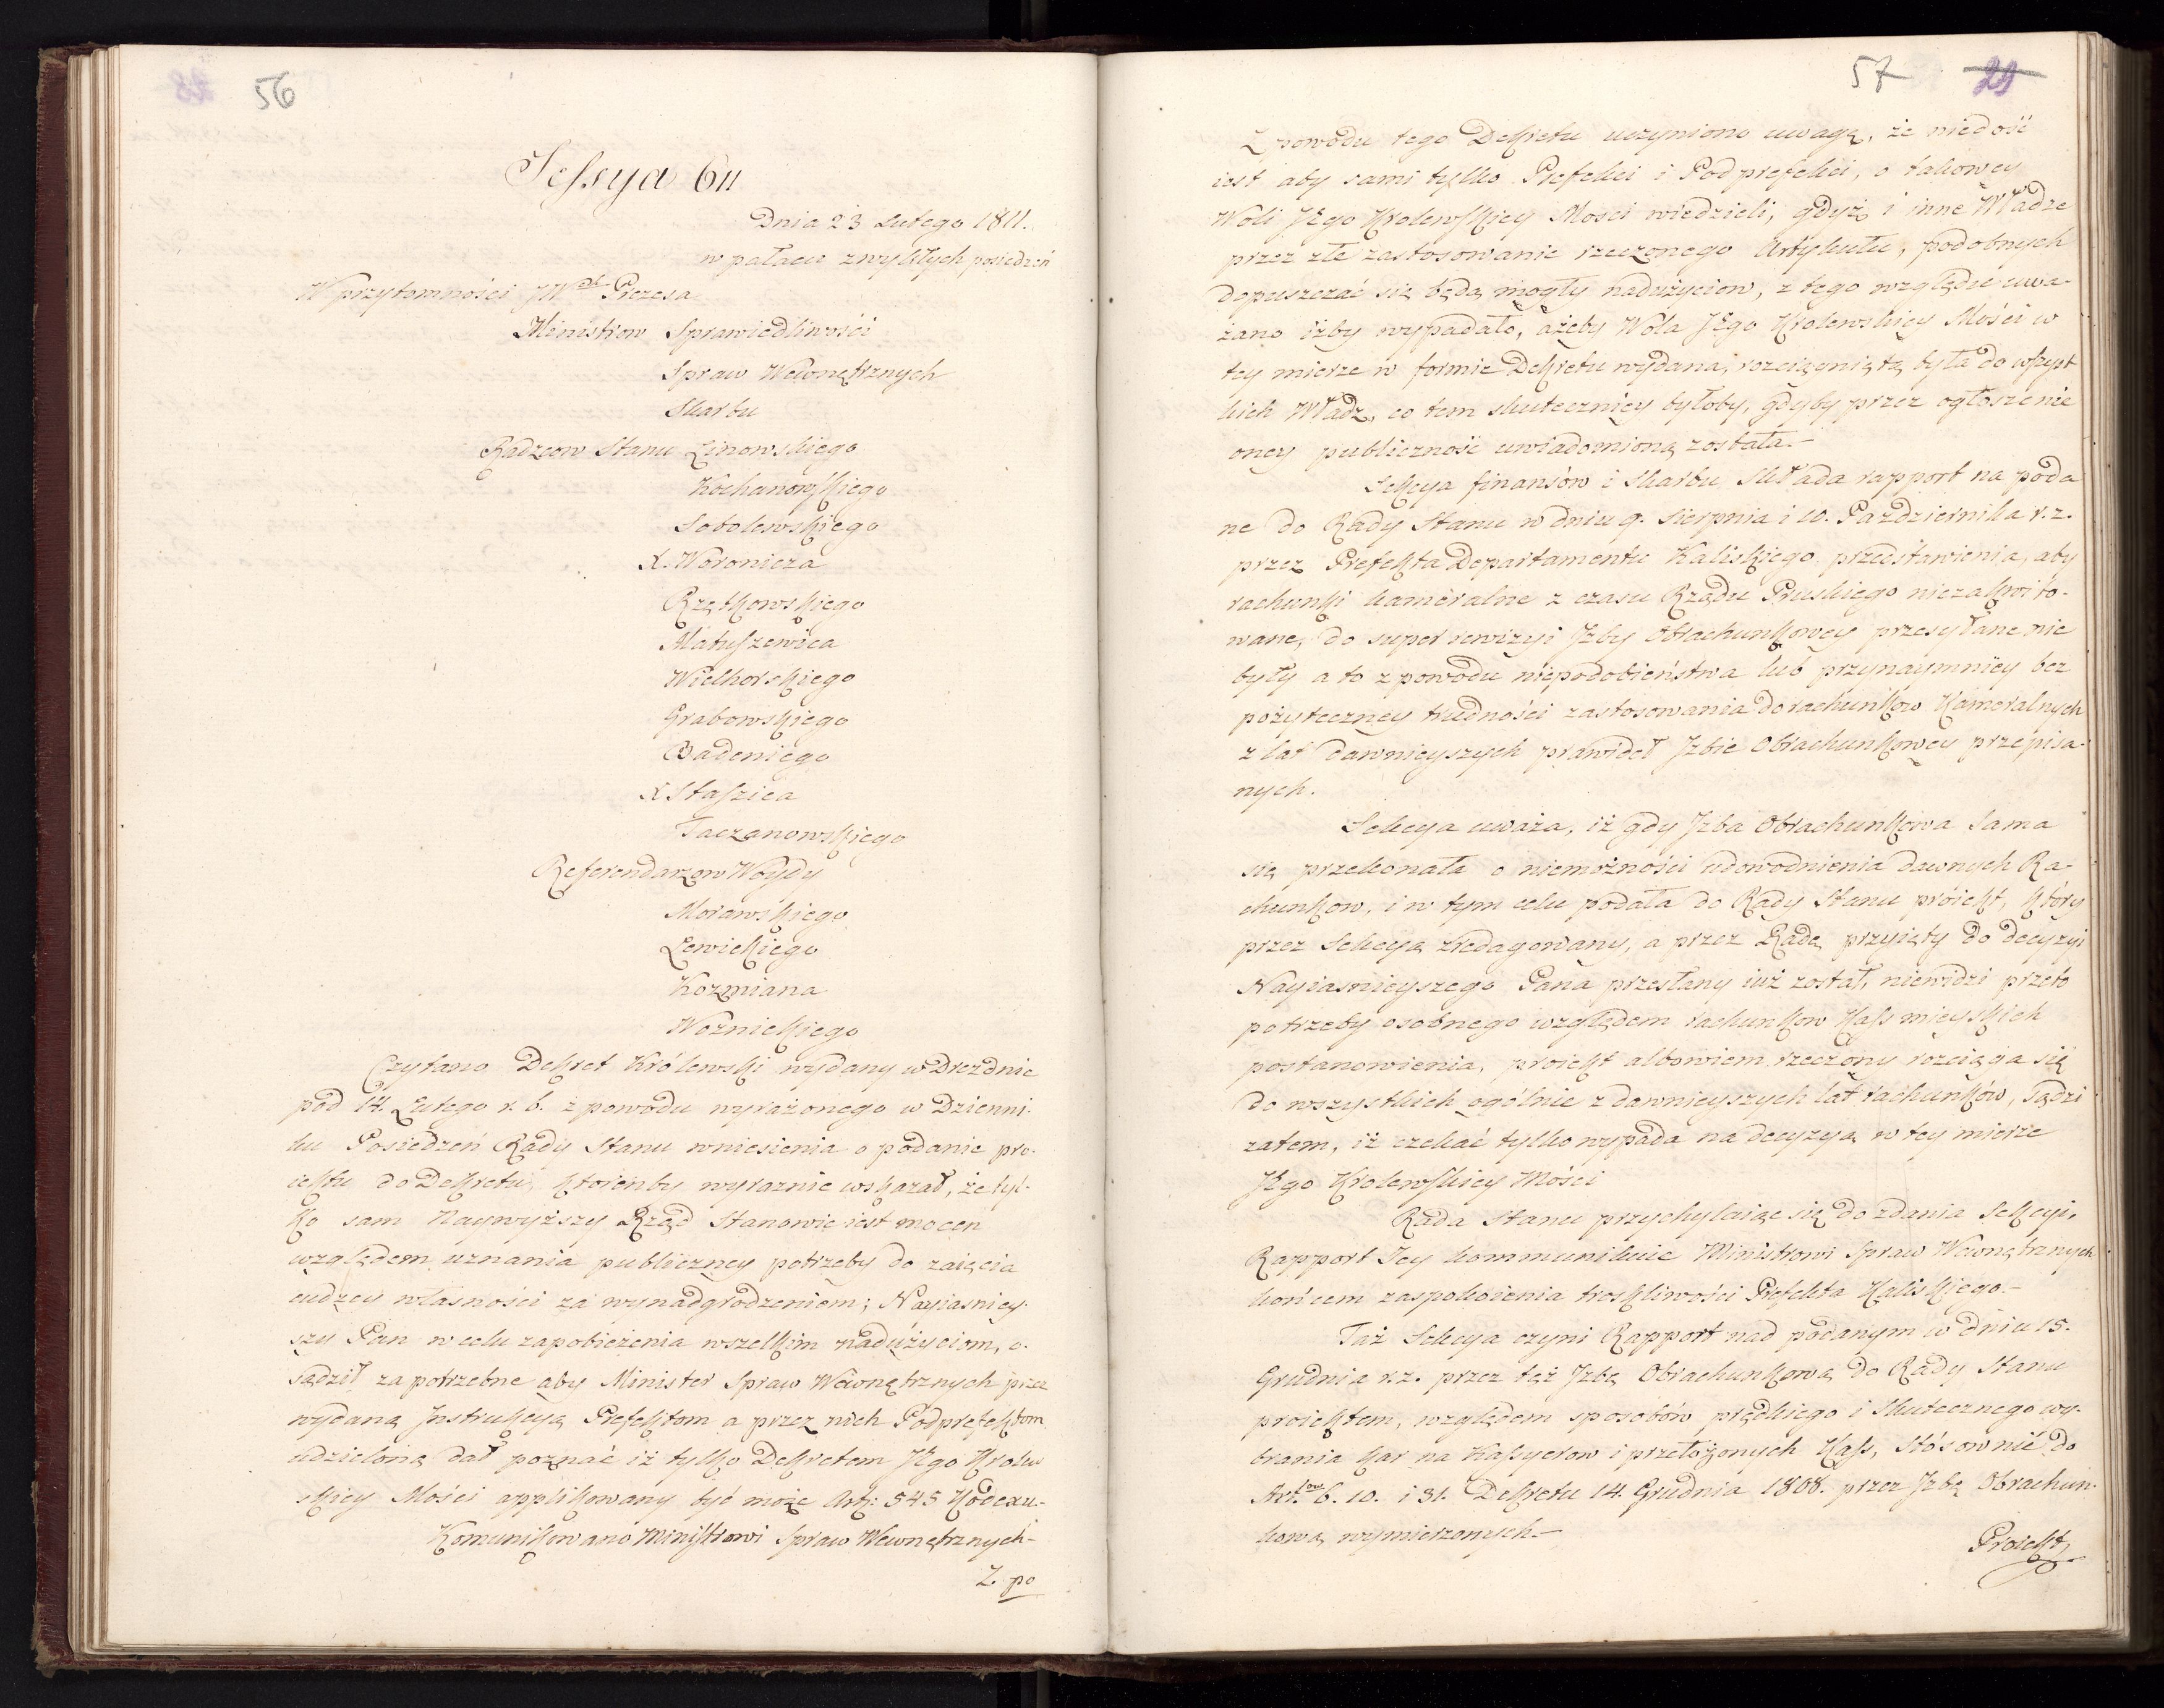 56
Sessya 611
Dnia 23 Lutego 1811.
w pałacu zwykłych posiedzeń
W przytomności JW Prezesa
Ministrow Sprawiedliwości
Spraw Wewnętrznych
Skarbu
Radzcow Stanu Linowskiego
Kochanowskiego
Sobolewskiego
X. Woronicza
Rzętkowskiego
Matuszewica
Wielhorskiego
Grabowskiego
Badeniego
X Staszica
Taczanowskiego
Referendarzow Woydy
Morawskiego
Lewickiego
Kozmiana
Woznickiego
Czytano Dekret Królewski wydany w Dreznie
pod 14. Lutego r. b. z powodu wyrażonego w Dzienni-
ku Posiedzeń Rady Stanu wniesienia o podanie pro-
iektu do Dekretu, ktorenby wyraznie wskazał, że tyl-
ko sam Naywyższy Rząd Stanowic iest mocen
względem uznania publiczney potrzeby do zaięcia
cudzey własności za wynadgrodzeniem; Nayiasniey-
szy Pan w celu zapobieżenia wszelkim nadużyciom, o-
sądził za potrzebne aby Minister Spraw Wewnętrznych przez
wydaną Instrukcyą Prefektom a przez nich Podprefektom
udzieloną dał poznać iż tylko Dekretem JEgo Krolew
skiey Mości applikowany być może Art: 545 Kodexu.-
Komunikowano Ministrowi Spraw Wewnętrznych-
Z. po
57 29
Z powodu tego Dekretu uczyniono uwagę, że niedość
iest aby sami tylko Prefekci i Podprefekci, o takowey
Woli JEgo Krolewskiey Mosci wiedzieli, gdyż i inne Władze
przez złe zastosowanie rzeczonego Artykułu, podobnych
dopuszczać się będą mogły nadużyciow, z tego względu uwa-
żano iżby wypadało, ażeby Wola JEgo Krolewskiey Mości w
tey mierze w formie Dekretu wydana, rozciągniętą była do wszyst
kich Władz, co tem skuteczniey byłoby, gdyby przez ogłoszenie
oney publiczność uwiadomioną została.-
Sekcya finansów i Skarbu składa rapport na poda
ne do Rady Stanu w dniu 9. Sierpnia i 10. Pazdziernika r. z.
przez Prefekta Departamentu Kaliskiego przedstawienia, aby
rachunki kameralne z czasu Rządu Pruskiego niezakwito-
wane, do super rewizyi Izby Obrachunkowey przesyłane nie
były a to z powodu niepodobieństwa lub przynaymniey bez
pożyteczney trudności zastosowania do rachunkow Kameralnych
z lat dawnieyszych prawideł Izbie Obrachunkowey przepisa-
nych.
Sekcya uważa, iż gdy Izba Obrachunkowa sama
się przekonała o niemożności udowodnienia dawnych Ra-
chunkow, i w tym celu podała do Rady Stanu proiekt, który
przez Sekcyą zredagowany, a przez Radę przyięty do decyzyi
Nayiasnieyszego Pana przesłany iuż został, niewidzi przeto
potrzeby osobnego względem rachunkow Kass mieyskich
postanowienia, proiekt albowiem rzeczony rozciąga się
do wszystkich ogólnie z dawnieyszych lat rachunków, sądzi
zatem, iż czekać tylko wypada na decyzyą w tey mierze
JEgo Krolewskiey Mości
Rada Stanu przychylaiąc się do zdania Sekcyi,
Rapport Jey kommunikuie Ministrowi Spraw Wewnętrznych
końcem zaspokoienia troskliwości Prefekta Kaliskiego.-
Taż Sekcya czyni Rapport nad podanym w dniu 15.
Grudnia r. z. przez też Izbę Obrachunkową do Rady Stanu
proiektem, względem sposobów prędkiego i skutecznego wy-
brania kar na Kassyerow i przełożonych Kass, stósownie do
Art.ow 6. 10. i 31. Dekretu 14. Grudnia 1808. przez Izbę Obrachun-
kową wymierzonych.-
Proiekt,